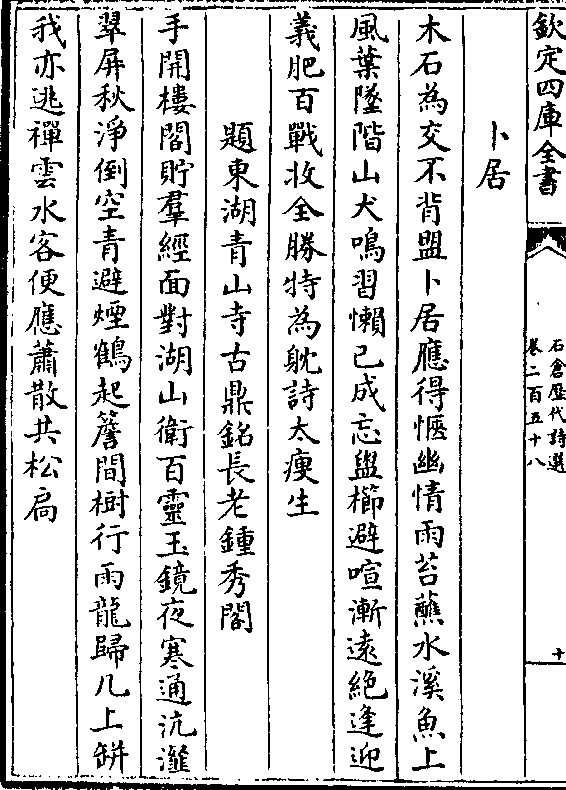 欽定四庫全書
石倉歷代詩選
卷二百五十八
十
卜居
木石為交不背盟卜居應得愜幽情雨苔蘸水溪魚上
風葉墜階山犬鳴習懶已成忘盥櫛避喧漸遠絕逢迎
義肥百戰收全勝特為躭詩太瘦生
題東湖青山寺古鼎銘長老鍾秀閣
手開樓閣貯羣經面對湖山衛百靈玉鏡夜寒通沆瀣
翠屏秋淨倒空青避煙鶴起簷間樹行雨龍歸几上缾
我亦逃禪雲水客便應蕭散共松扃